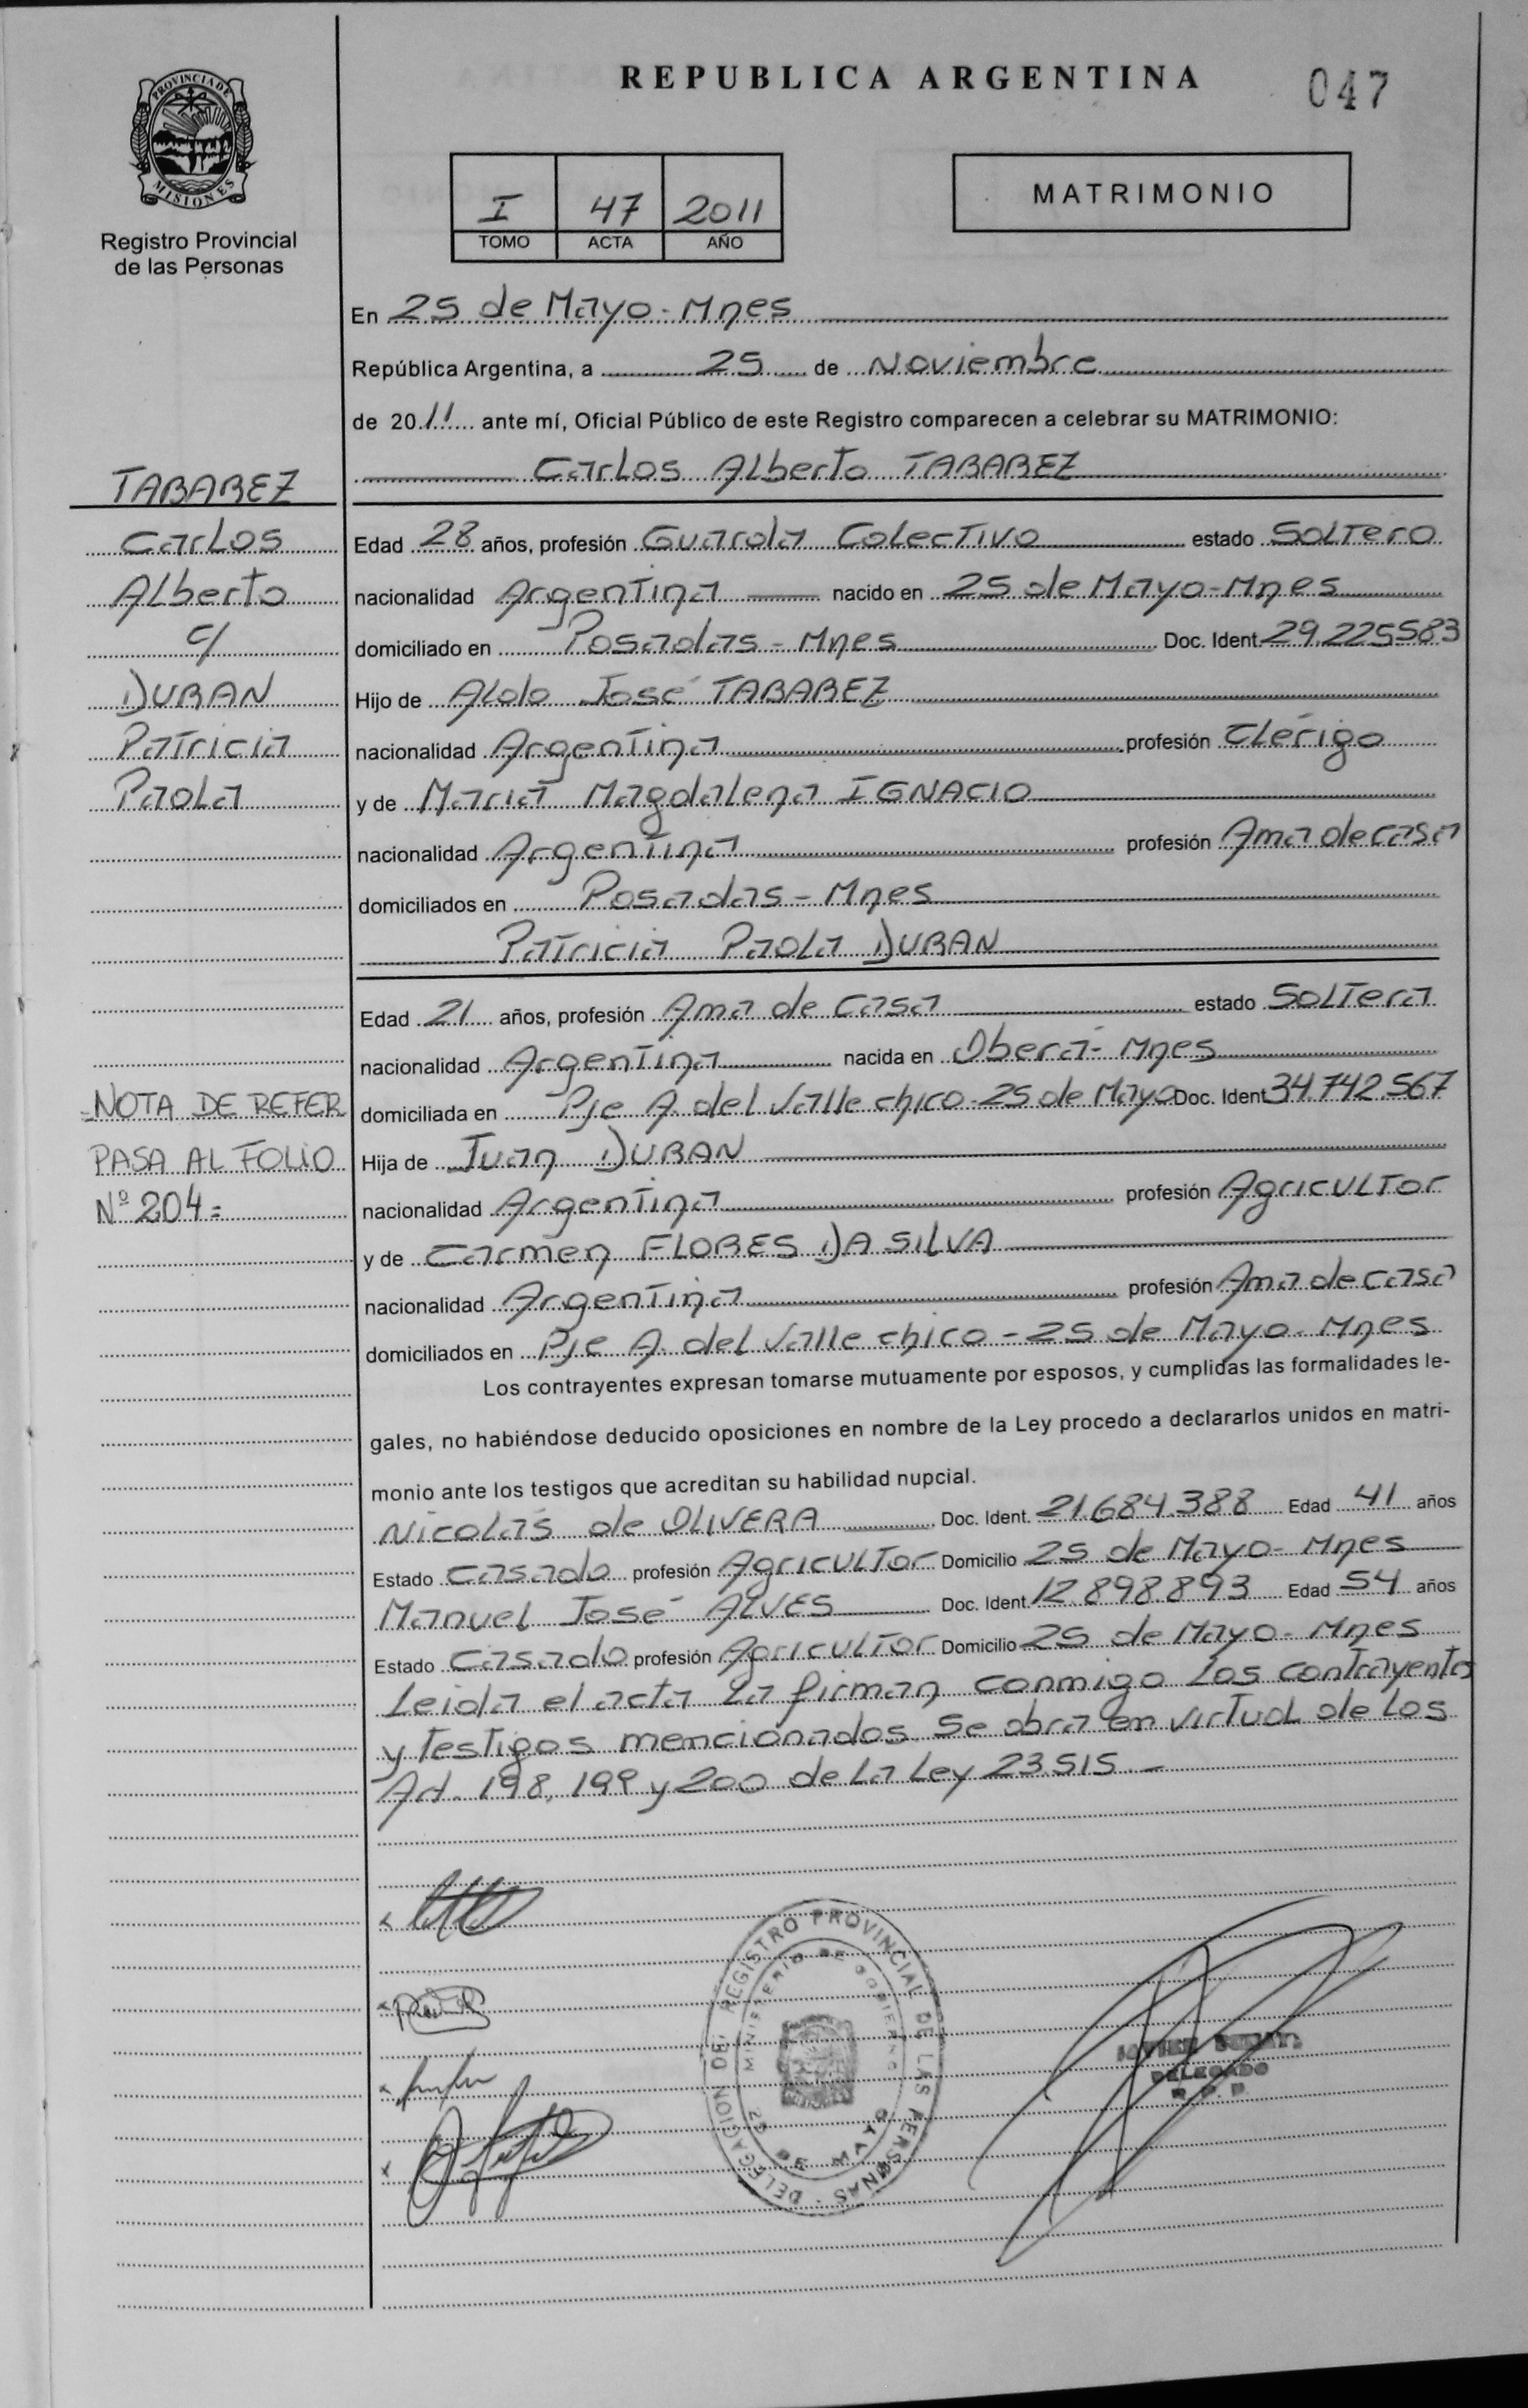 REPUBLICA ARGENTINA
047
PROVINCIA DE
MISIONES
Registro Provincial
de las Personas
I 47 2011
TOMO ACTA AÑO
MATRIMONIO
En 25 de Mayo - Mnes
República Argentina, a 25 de Noviembre
de 2011 ante mí, Oficial Público de este Registro comparecen a celebrar su MATRIMONIO:
Carlos Alberto TABAREZ
TABAREZ
Carlos
Alberto
c/
DURAN
Patricia
Paola
Edad 28 años, profesión Guarda Colectivo estado Soltero
nacionalidad Argentina nacido en 25 de Mayo - Mnes
domiciliado en Posadas - Mnes Doc. Ident. 29.225583
Hijo de Aldo José TABAREZ
nacionalidad Argentina profesión Clérigo
y de María Magdalena IGNACIO
nacionalidad Argentina profesión Ama de casa
domiciliados en Posadas - Mnes
Patricia Paola DURAN
Edad 21 años, profesión Ama de Casa estado Soltera
nacionalidad Argentina nacida en Oberá - Mnes
domiciliada en Pje A. del Valle chico - 25 de Mayo Doc. Ident 34.742.567
Hija de Juan DURAN
nacionalidad Argentina profesión Agricultor
y de Carmen FLORES DA SILVA
nacionalidad Argentina profesión Ama de casa
domiciliados en Pje A. del Valle chico - 25 de Mayo - Mnes
NOTA DE REFER
PASA AL FOLIO
Nº 204=
Los contrayentes expresan tomarse mutuamente por esposos, y cumplidas las formalidades le-
gales, no habiéndose deducido oposiciones en nombre de la Ley procedo a declararlos unidos en matri-
monio ante los testigos que acreditan su habilidad nupcial.
Nicolás de OLIVERA Doc. Ident. 21.684.388 Edad 41 años
Estado Casado profesión Agricultor Domicilio 25 de Mayo - Mnes
Manuel José ALVES Doc. Ident. 12.898.893 Edad 54 años
Estado Casado profesión Agricultor Domicilio 25 de Mayo - Mnes
Leida el acta la firman conmigo los contrayentes
y testigos mencionados. Se obra en virtud de los
Art. 198, 199 y 200 de la Ley 23.515.-
DELEGACION DEL REGISTRO PROVINCIAL DE LAS PERSONAS
MINISTERIO DE GOBIERNO
25 DE MAYO
DELEGADO
R. P. P.